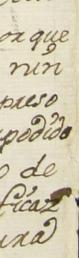 or que
nin
preso
podido
o de
ficaz
una